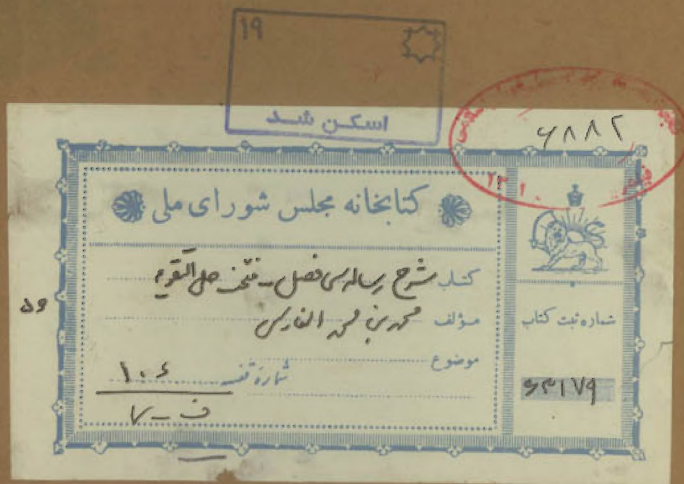 ۱۹
اسکن شد
۶۸۸۲
کتابخانه مجلس شورای ملی
کتاب شرح رساله سی فصل - منتخب حل التقویم
مؤلف محمد بن محمد الفارسی
موضوع
شماره قفسه ۱۰۶
شماره ثبت کتاب
۵۶